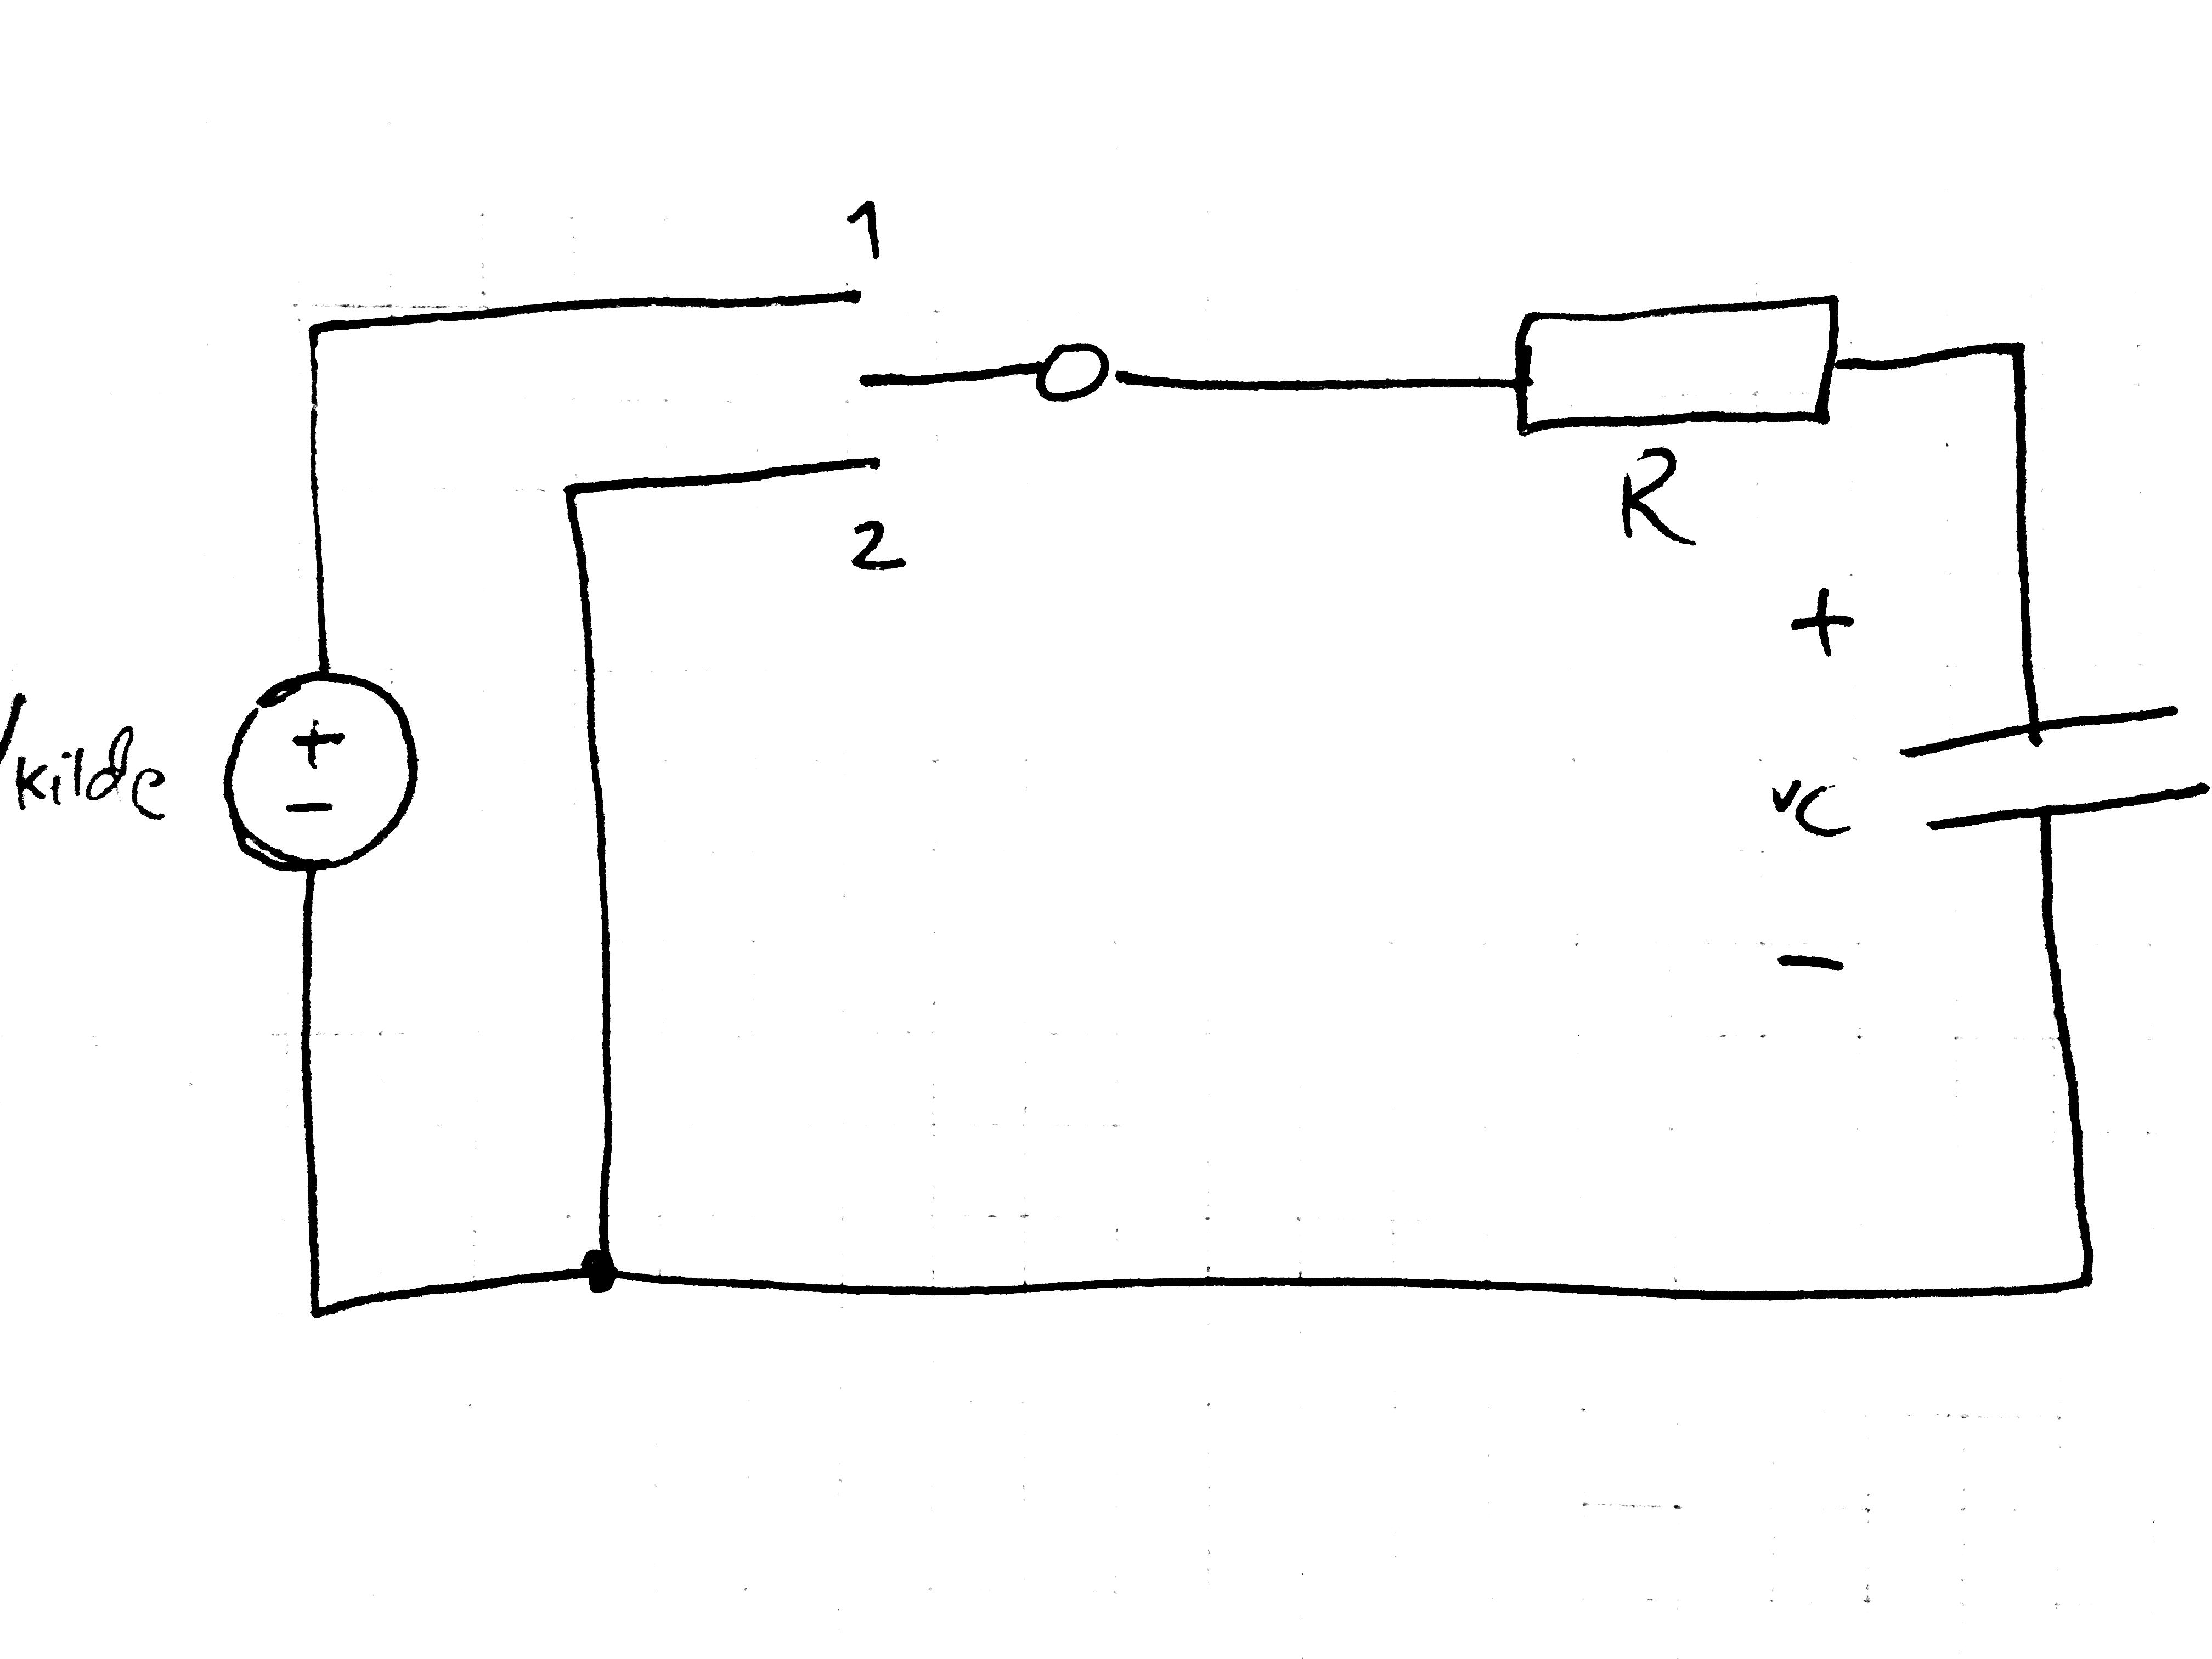 1
2
R
+
Vkilde
+
-
vC
-